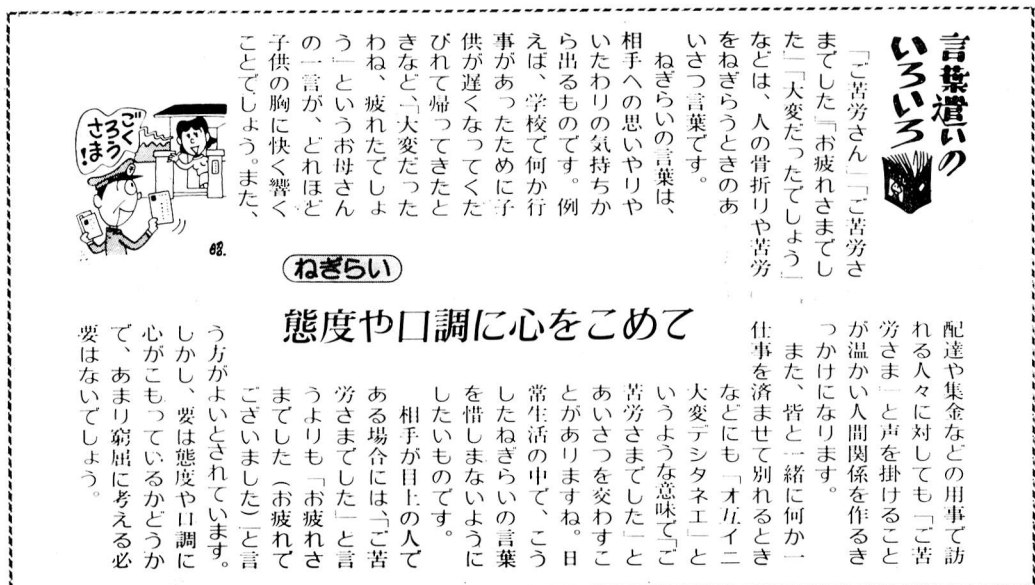 言葉遣いの
いろいろ
「ご苦労さん」「ご苦労さ
までした」「お疲れさまでし
た」「大変だったでしょう」
などは、人の骨折りや苦労
をねぎらうときのあ
いさつ言葉です。
ねぎらいの言葉は、
相手への思いやりや
いたわりの気持ちか
ら出るものです。例
えば、学校で何か行
事があったために子
供が遅くなってくた
びれて帰ってきたと
きなど、「大変だった
わね、疲れたでしょ
う」というお母さん
の一言が、どれほど
子供の胸に快く響く
ことでしょう。また、
ごく
ろう
さま!
ねぎらい
態度や口調に心をこめて
配達や集金などの用事で訪
れる人々に対しても「ご苦
労さま」と声を掛けること
が温かい人間関係を作るき
っかけになります。
また、皆と一緒に何か一
仕事を済ませて別れるとき
などにも「オ互イニ
大変デシタネエ」と
いうような意味で「ご
苦労さまでした」と
あいさつを交わすこ
とがありますね。日
常生活の中で、こう
したねぎらいの言葉
を惜しまないように
したいものです。
相手が目上の人で
ある場合には、「ご苦
労さまでした」と言
うよりも「お疲れさ
までした(お疲れで
ございました)」と言
う方がよいとされています。
しかし、要は態度や口調に
心がこもっているかどうか
で、あまり窮屈に考える必
要はないでしょう。